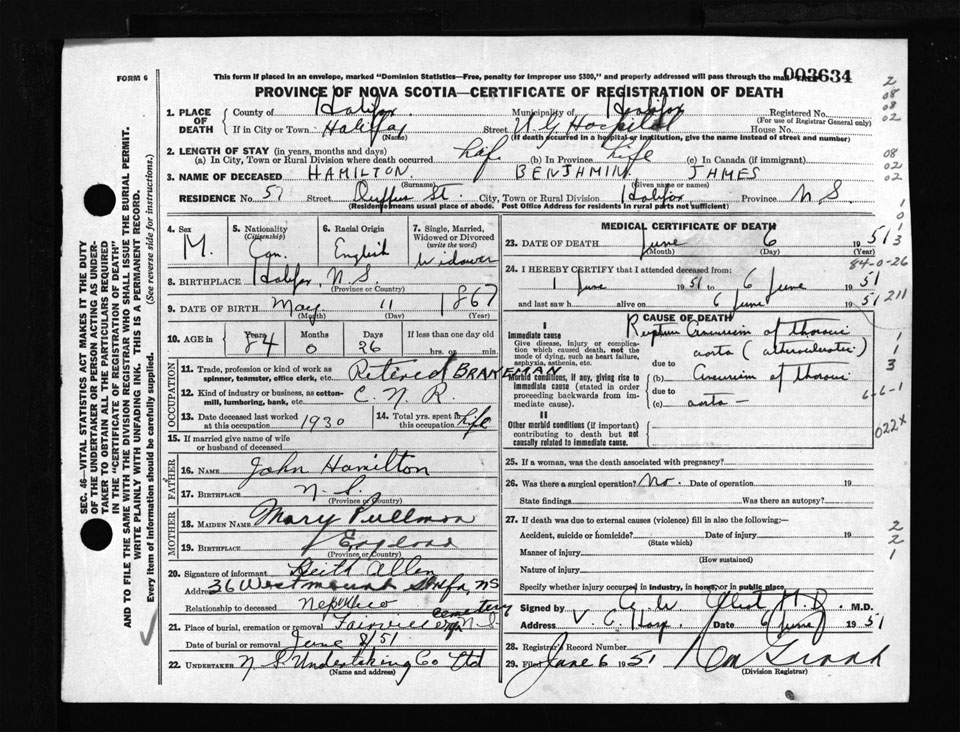 FORM 6
This form if placed in an envelope, marked "Dominion Statistics—Free, penalty for improper use $300," and properly addressed will pass through the mail
003634
PROVINCE OF NOVA SCOTIA—CERTIFICATE OF REGISTRATION OF DEATH
1. PLACE OF DEATH County of Halifax Municipality of Halifax Registered No.
(For use of Registrar General only)
If in City or Town Halifax Street V.G. Hospital House No.
(Name) (If death occurred in a hospital or institution, give the name instead of street and number)
2. LENGTH OF STAY (in years, months and days)
(a) In City, Town or Rural Division where death occurred Life (b) In Province Life (c) In Canada (if immigrant)
3. NAME OF DECEASED HAMILTON BENJAMIN JAMES
(Surname) (Given name or names)
RESIDENCE No. 51 Street Duffus St. City, Town or Rural Division Halifax Province N S
(Residence means usual place of abode. Post Office Address for residents in rural parts not sufficient)
4. Sex M.
5. Nationality (Citizenship) Can.
6. Racial Origin English
7. Single, Married, Widowed or Divorced (write the word) Widower
8. BIRTHPLACE Halifax, N.S.
(Province or Country)
9. DATE OF BIRTH May 11 1867
(Month) (Day) (Year)
10. AGE in Years 84 Months 0 Days 26 If less than one day old
hrs. or min.
OCCUPATION
11. Trade, profession or kind of work as spinner, teamster, office clerk, etc. Retired BRAKEMAN
12. Kind of industry or business, as cotton-mill, lumbering, bank, etc. C.N.R.
13. Date deceased last worked at this occupation 1930
14. Total yrs. spent in this occupation Life
15. If married give name of wife or husband of deceased
FATHER
16. NAME John Hamilton
17. BIRTHPLACE N.S.
(Province or Country)
MOTHER
18. MAIDEN NAME Mary Pullman
19. BIRTHPLACE England
(Province or Country)
20. Signature of informant Keith Allen
Address 36 Westmount St Hfx, NS
Relationship to deceased Nephew
21. Place of burial, cremation or removal Fairview cemetery N.S.
Date of burial or removal June 8/51
22. UNDERTAKER N S Undertaking Co Ltd
(Name and address)
MEDICAL CERTIFICATE OF DEATH
23. DATE OF DEATH June 6 1951
(Month) (Day)
24. I HEREBY CERTIFY that I attended deceased from:
1 June 1951 to 6 June 1951
and last saw h alive on 6 June 1951
CAUSE OF DEATH
I
Immediate cause
Give disease, injury or complication which caused death, not the mode of dying, such as heart failure, asphyxia, asthenia, etc.
Aneurism of thoracic
aorta
due to
Morbid conditions, if any, giving rise to immediate cause (stated in order proceeding backwards from immediate cause).
(b) Aneurism of thoracic
due to
(c) aorta —
II
Other morbid conditions (if important) contributing to death but not causally related to immediate cause.
25. If a woman, was the death associated with pregnancy?
26. Was there a surgical operation? No. Date of operation 19
State findings Was there an autopsy?
27. If death was due to external causes (violence) fill in also the following:—
Accident, suicide or homicide? Date of injury 19
(State which)
Manner of injury
(How sustained)
Nature of injury
Specify whether injury occurred in industry, in home, or in public place
Signed by M.D.
Address V. G. Hosp. Date 6 June 1951
28. Registrar's Record Number
29. Filed June 6 1951
(Division Registrar)
SEC. 46—VITAL STATISTICS ACT MAKES IT THE DUTY
OF THE UNDERTAKER OR PERSON ACTING AS UNDERTAKER TO OBTAIN ALL THE PARTICULARS REQUIRED
IN THE "CERTIFICATE OF REGISTRATION OF DEATH"
AND TO FILE THE SAME WITH THE DIVISION REGISTRAR WHO SHALL ISSUE THE BURIAL PERMIT.
WRITE PLAINLY WITH UNFADING INK. THIS IS A PERMANENT RECORD.
Every item of information should be carefully supplied. (See reverse side for instructions.)
2
08
08
02
08
02
02
1
0
1
3
84-0-26
211
1
1
3
6-6-1
022X
2
2
1